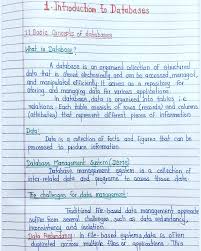 1. Introduction to Databases
1.1 Basic Concepts of databases
What is Database?
A database is an organised collection of structured
data that is stored electronically and can be accessed, managed,
and manipulated efficiently. It serves as a repository for
storing and managing data for various applications.
In databases, data is organised into tables i.e.
relations. Each table consists of rows (records) and columns
(attributes) that represent different pieces of information.
Data:
Data is a collection of facts and figures that can be
processed to produce information.
Database Management System (DBMS)
Database management system is a collection of
inter-related data and programs to access those data.
The challenges for data management
Traditional file-based data management approach
suffer from several challenges, such as data redundancy,
inconsistency and isolation.
Data Redundancy: In file-based systems data is often
duplicated across multiple files or applications. This